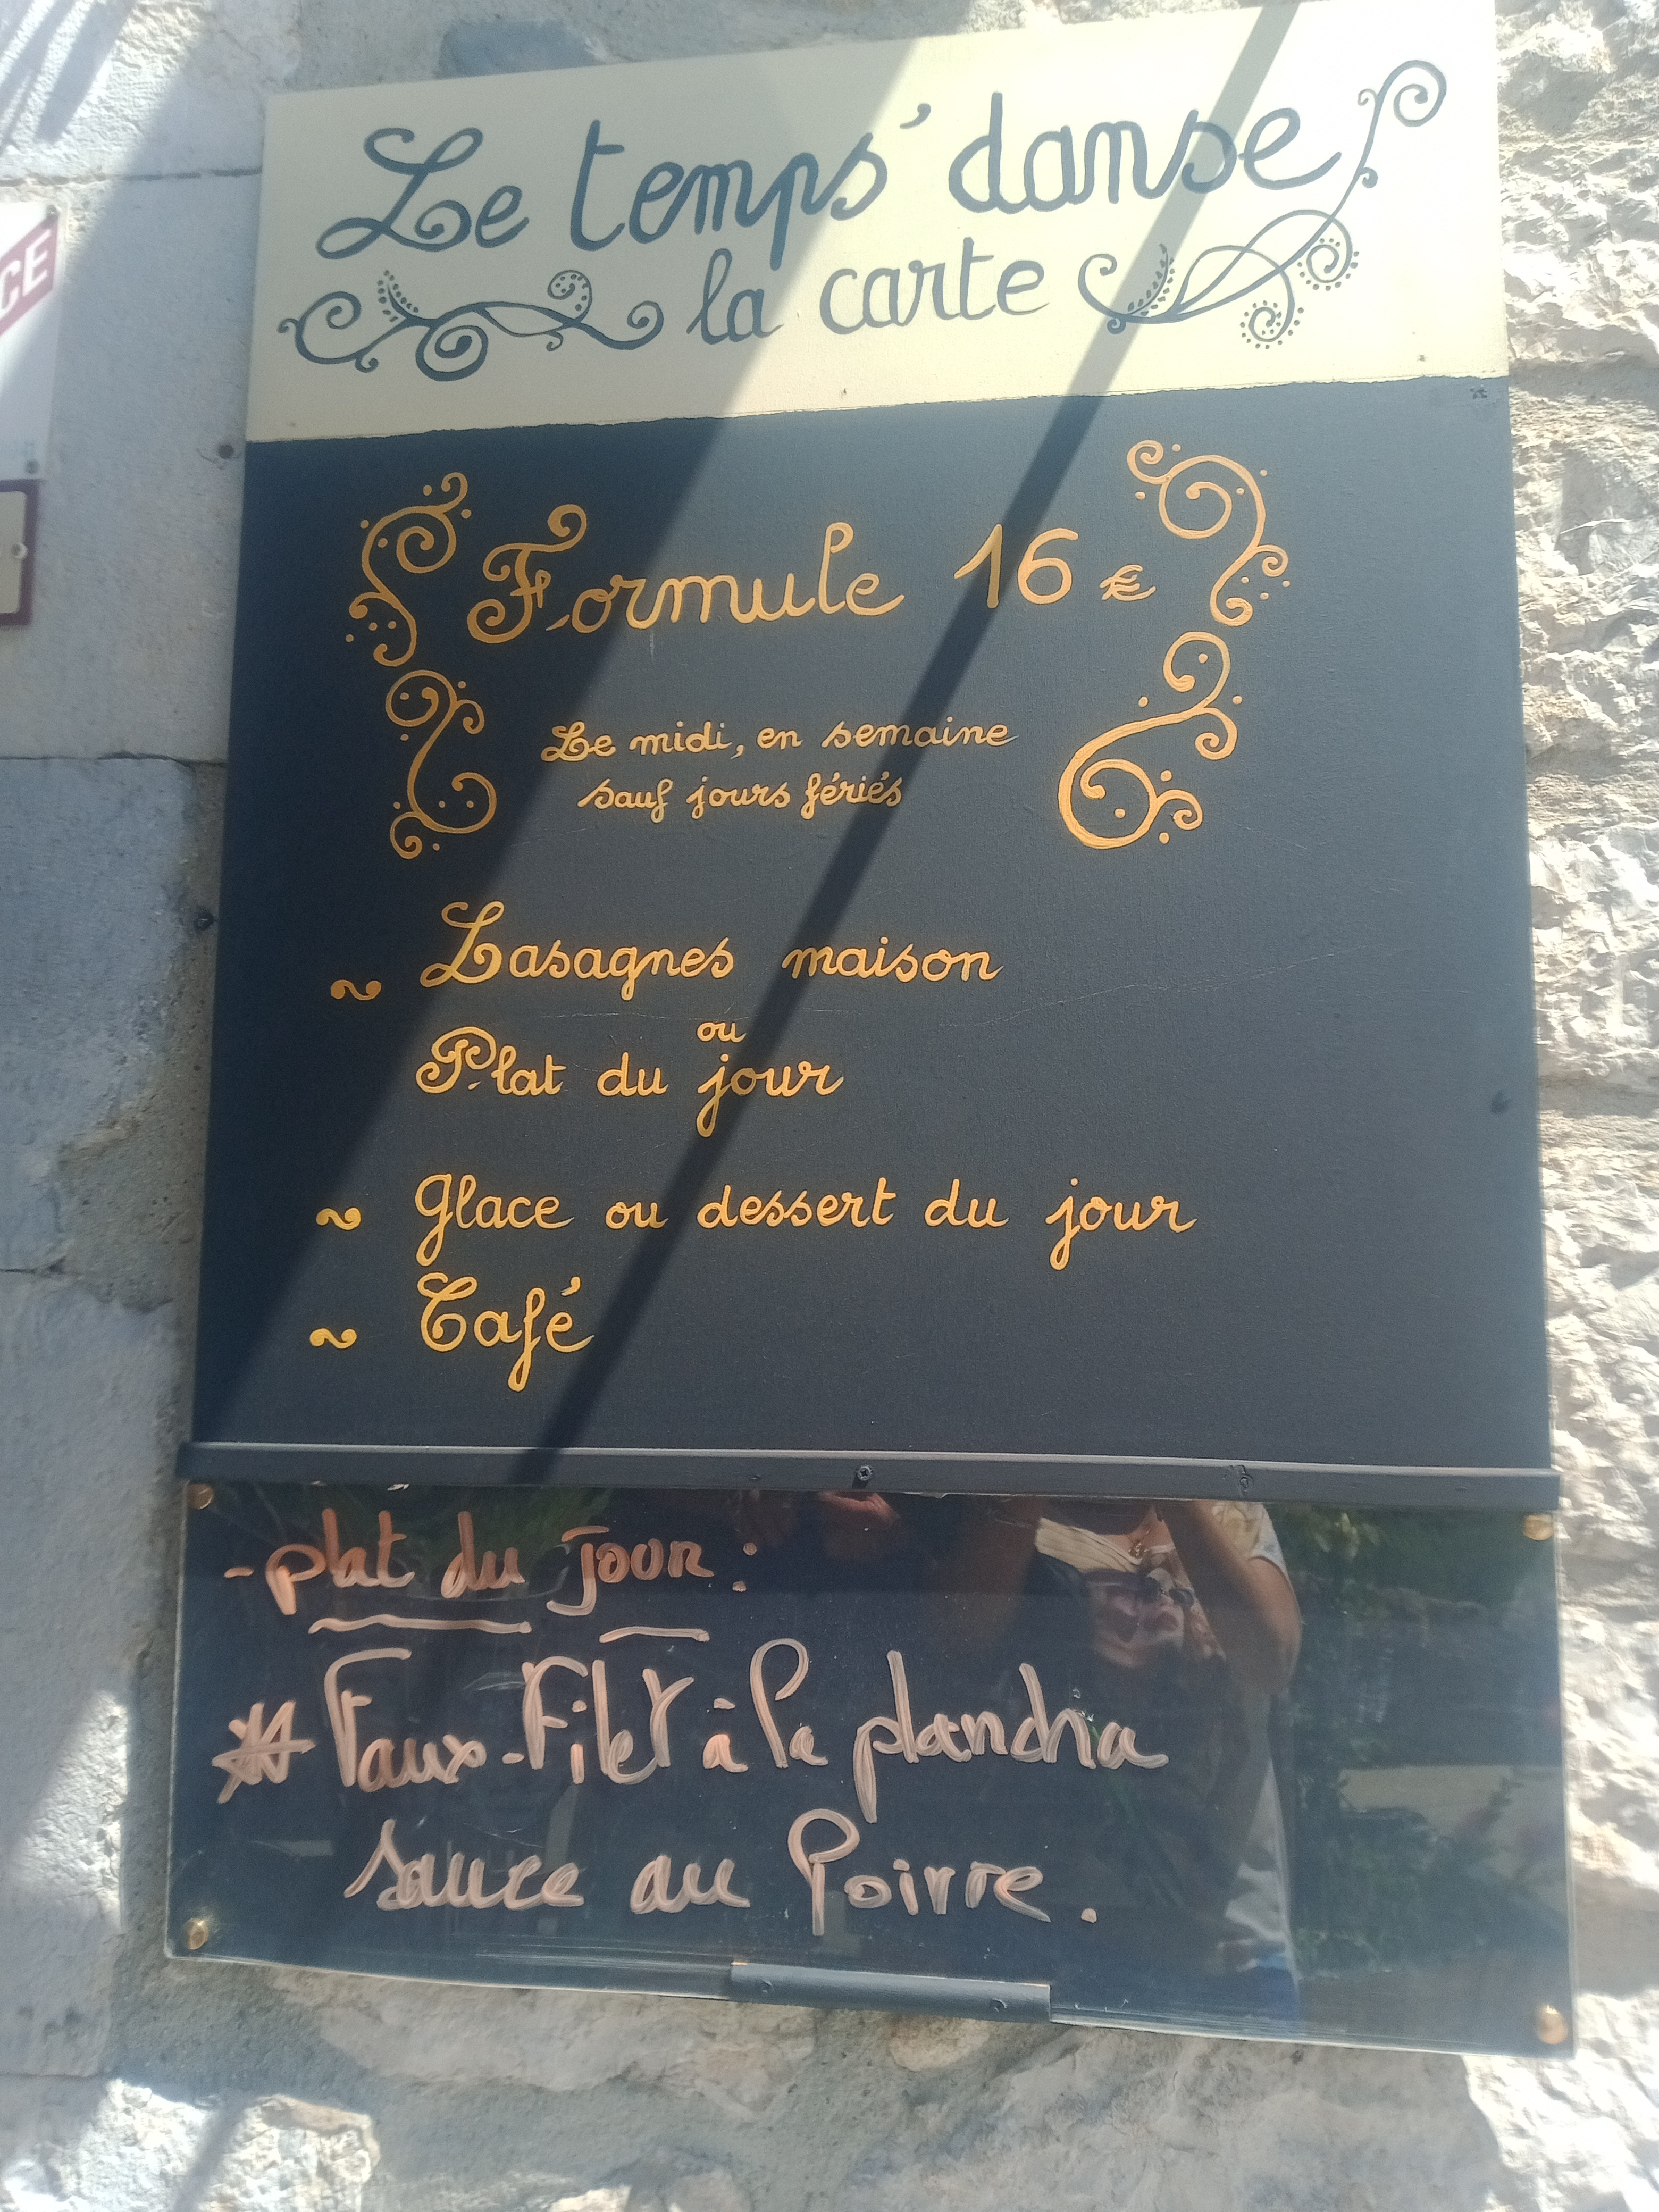 Le temps' danse
la carte
CE
Formule 16 €
Le midi, en semaine
sauf jours fériés
~ Lasagnes maison
ou
Plat du jour
~ glace ou dessert du jour
~ Café
- plat du jour :
* Faux-Filet à la plancha
sauce au Poivre.